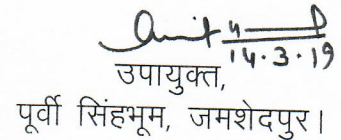 14.3.19
उपायुक्त,
पूर्वी सिंहभूम, जमशेदपुर।